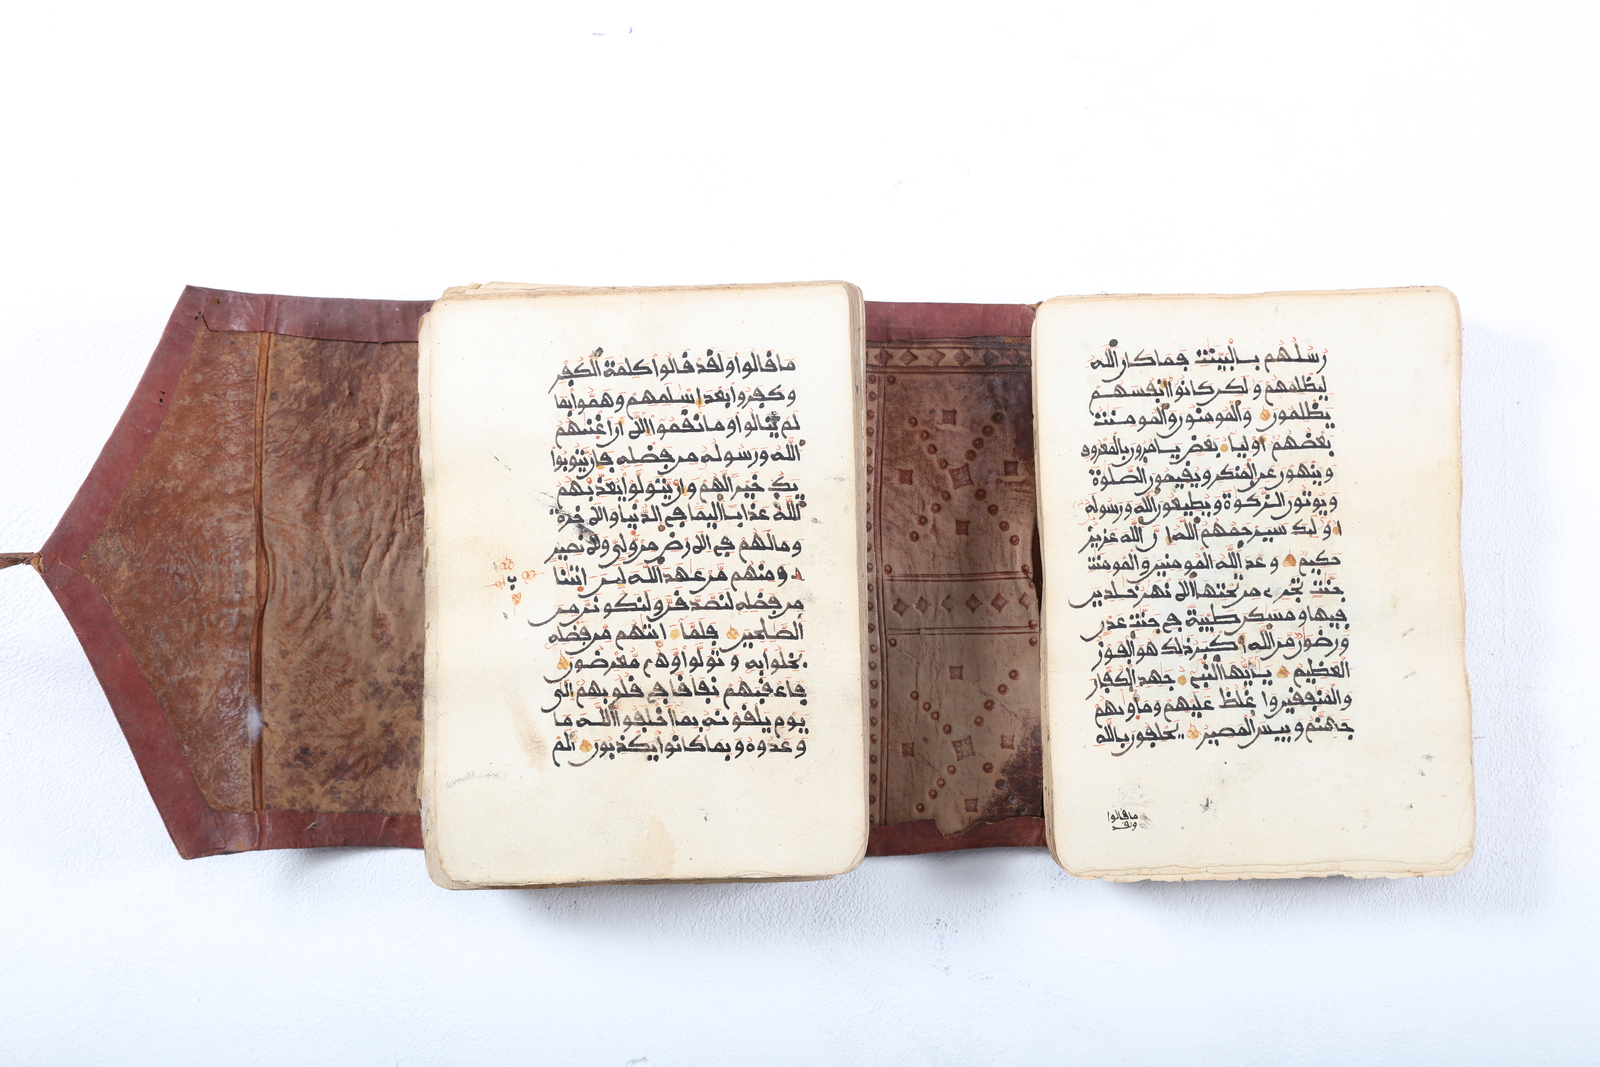 رسلهم بالبينت فما كان الله
ليظلمهم ولكن كانوا انفسهم
يظلمون والمومنون والمومنت
بعضهم اولياء بعض يامرون بالمعروف
وينهون عن المنكر ويقيمون الصلوة
ويوتون الزكوة ويطيعون الله ورسوله
اوليك سيرحمهم الله ان الله عزيز
حكيم وعد الله المومنين والمومنت
جنت تجري من تحتها الانهر خلدين
فيها ومسكن طيبة في جنت عدن
ورضون من الله اكبر ذلك هو الفوز
العظيم يايها النبي جهد الكفار
والمنفقين واغلظ عليهم وماويهم
جهنم وبيس المصير يحلفون بالله
ما قالوا
ولقد
ما قالوا ولقد قالوا كلمة الكفر
وكفروا بعد اسلمهم وهموا بما
لم ينالوا وما نقموا الا ان اغنيهم
الله ورسوله من فضله فان يتوبوا
يك خيرا لهم وان يتولوا يعذبهم
الله عذابا اليما في الدنيا والاخرة
وما لهم في الارض من ولي ولا نصير
ومنهم من عهد الله لين اتينا
من فضله لنصدقن ولنكونن من
الصلحين فلما اتيهم من فضله
بخلوا به وتولوا وهم معرضون
فاعقبهم نفاقا في قلوبهم الى
يوم يلقونه بما اخلفوا الله ما
وعدوه وبما كانوا يكذبون الم